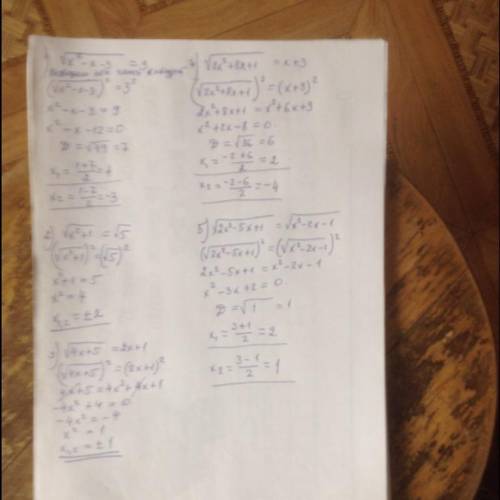 1) √(x²-x-3) = 3
Возведём обе части в квадрат
(√(x²-x-3))² = 3²
x²-x-3 = 9
x²-x-12 = 0
D = √49 = 7
x₁ = (1+7)/2 = 4
x₂ = (1-7)/2 = -3
2) √(x²+1) = √5
(√(x²+1))² = (√5)²
x²+1 = 5
x² = 4
x₁,₂ = ±2
3) √(4x+5) = 2x+1
(√(4x+5))² = (2x+1)²
4x+5 = 4x²+4x+1
-4x²+4 = 0
-4x² = -4
x² = 1
x₁,₂ = ±1
√(2x²+8x+1) = x+3
(√(2x²+8x+1))² = (x+3)²
2x²+8x+1 = x²+6x+9
x²+2x-8 = 0
D = √36 = 6
x₁ = (-2+6)/2 = 2
x₂ = (-2-6)/2 = -4
5) √(2x²-5x+1) = √(x²-2x-1)
(√(2x²-5x+1))² = (√(x²-2x-1))²
2x²-5x+1 = x²-2x-1
x²-3x+2 = 0
D = √1 = 1
x₁ = (3+1)/2 = 2
x₂ = (3-1)/2 = 1